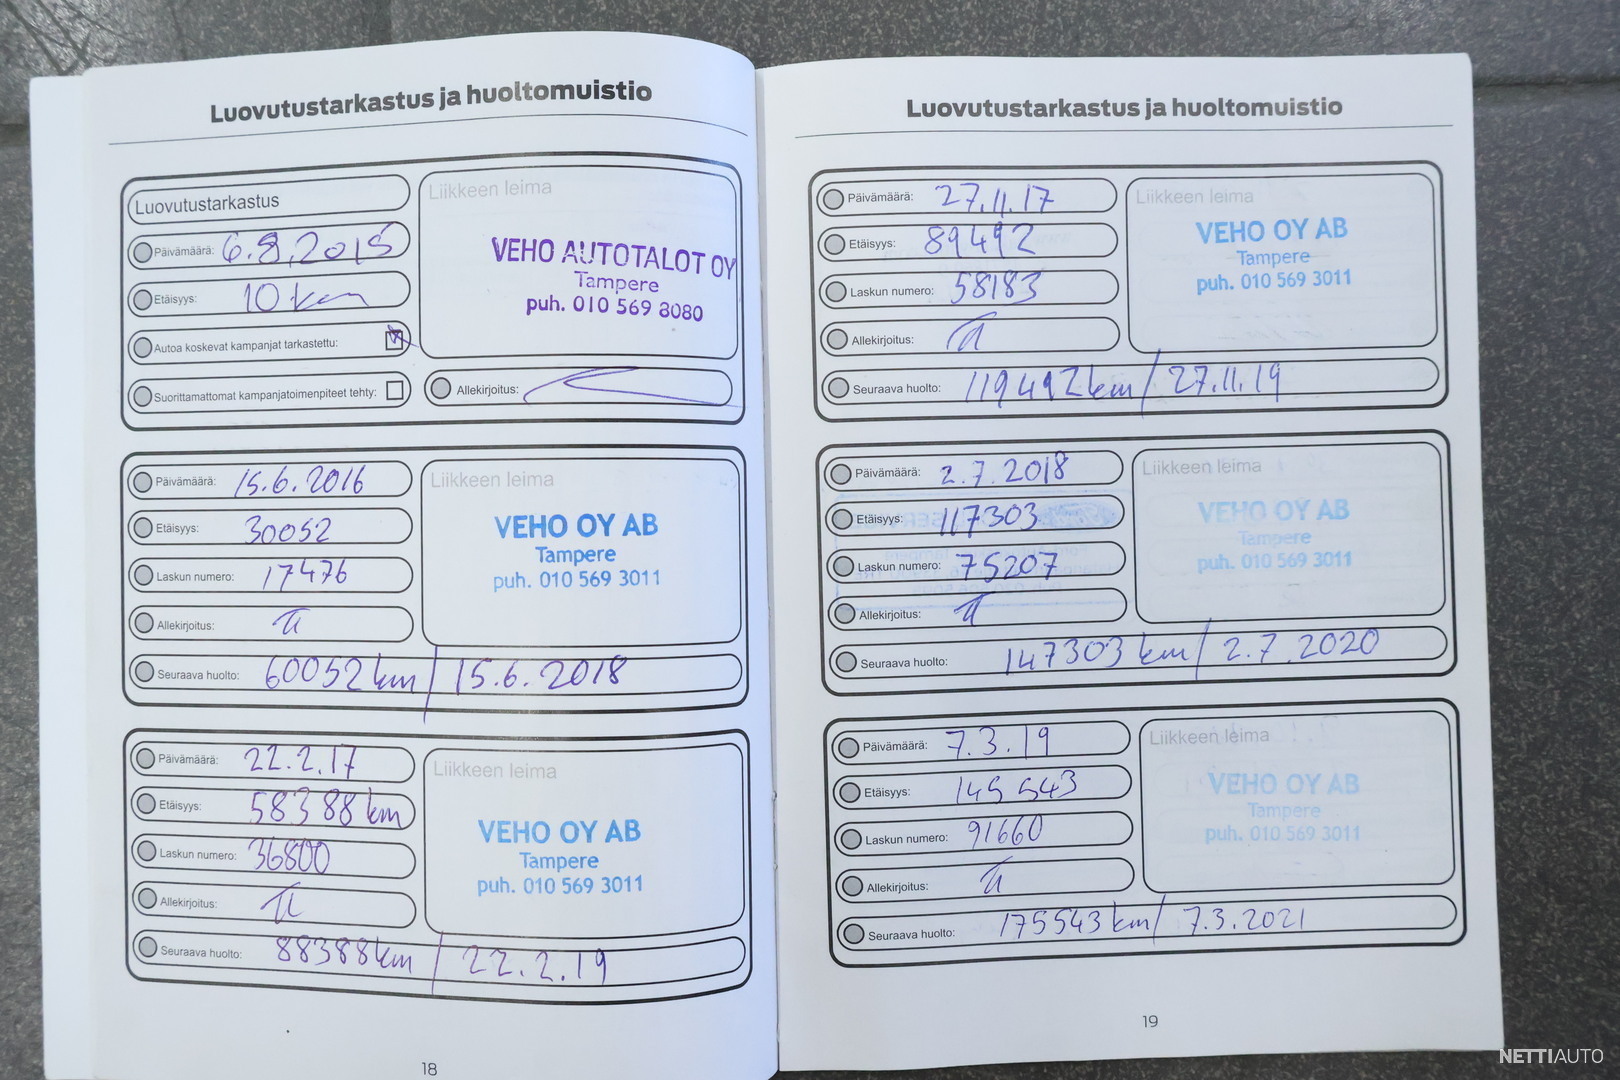 Luovutustarkastus ja huoltomuistio
Luovutustarkastus
Päivämäärä: 6.8.2015
Etäisyys: 10 km
Autoa koskevat kampanjat tarkastettu:
Suorittamattomat kampanjatoimenpiteet tehty:
Liikkeen leima
VEHO AUTOTALOT OY
Tampere
puh. 010 569 8080
Allekirjoitus:
Päivämäärä: 15.6.2016
Etäisyys: 30052
Laskun numero: 17476
Allekirjoitus:
Liikkeen leima
VEHO OY AB
Tampere
puh. 010 569 3011
Seuraava huolto: 60052 km / 15.6.2018
Päivämäärä: 22.2.17
Etäisyys: 58388 km
Laskun numero: 36800
Allekirjoitus:
Liikkeen leima
VEHO OY AB
Tampere
puh. 010 569 3011
Seuraava huolto: 88388 km / 22.2.19
18
Luovutustarkastus ja huoltomuistio
Päivämäärä: 27.11.17
Etäisyys: 89492
Laskun numero: 58183
Allekirjoitus:
Liikkeen leima
VEHO OY AB
Tampere
puh. 010 569 3011
Seuraava huolto: 119492 km / 27.11.19
Päivämäärä: 2.7.2018
Etäisyys: 117303
Laskun numero: 75207
Allekirjoitus:
Liikkeen leima
VEHO OY AB
Tampere
puh. 010 569 3011
Seuraava huolto: 147303 km / 2.7.2020
Päivämäärä: 7.3.19
Etäisyys: 145 543
Laskun numero: 91660
Allekirjoitus:
Liikkeen leima
VEHO OY AB
Tampere
puh. 010 569 3011
Seuraava huolto: 175543 km / 7.3.2021
19
NETTIAUTO